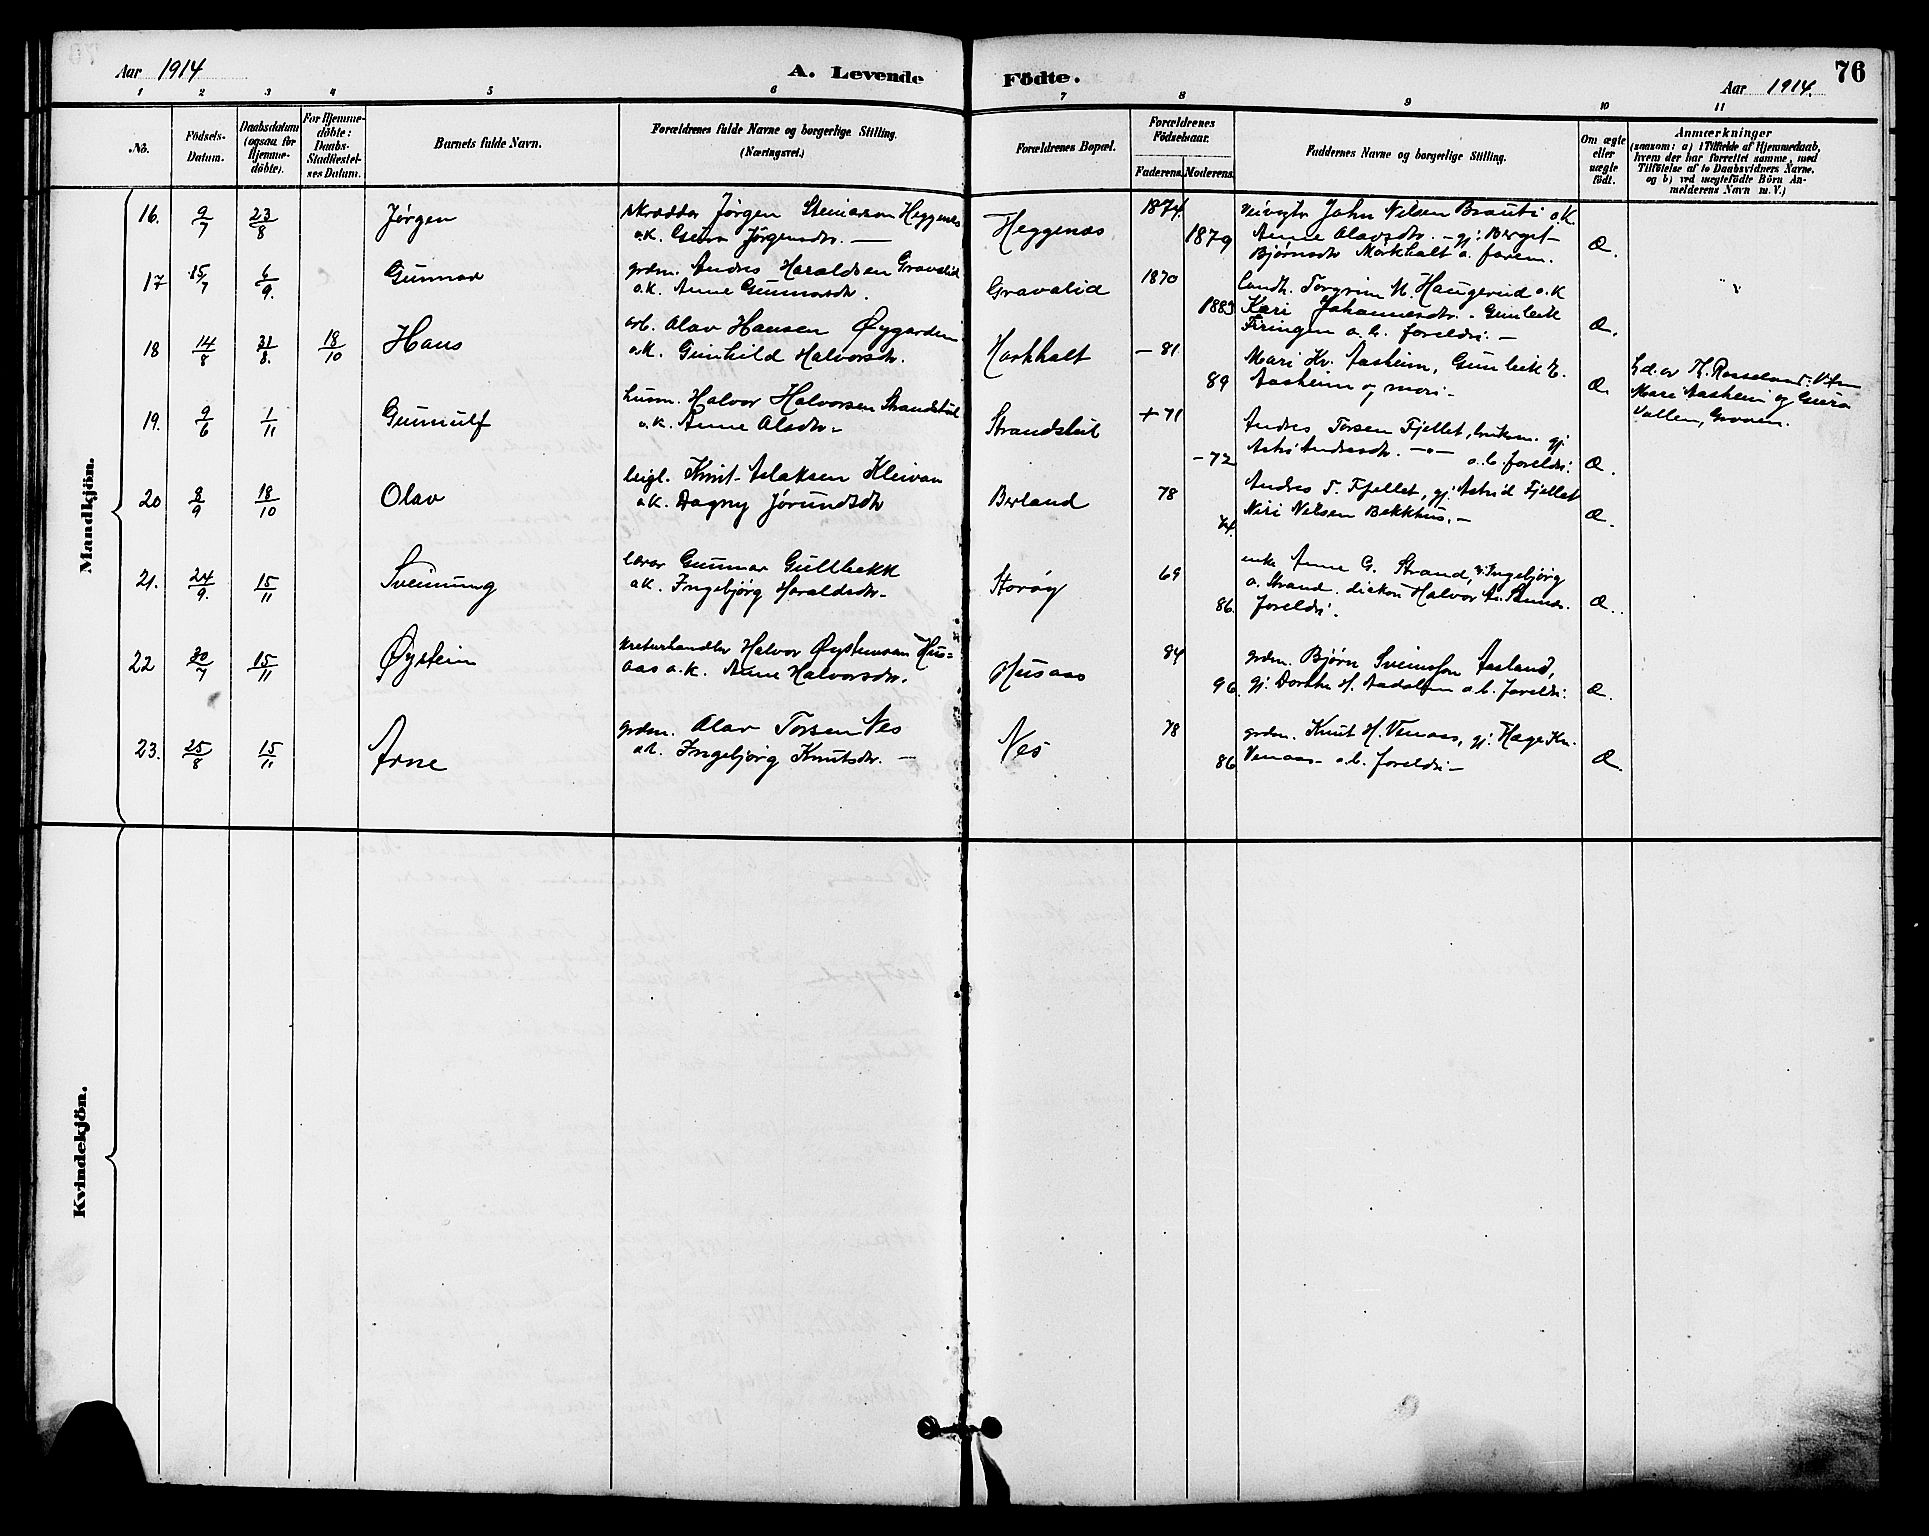 Aar 1914
A. Levende Födte.
Aar 1914.
76
1 2 3 4 5 6 7 8 9 10 11
No.
Födsels-Datum.
Daabsdatum (ogsaa for Hjemmedöbte).
For Hjemmedöbte: Daabs-Stadfæstelses Datum.
Barnets fulde Navn.
Forældrenes fulde Navne og borgerlige Stilling. (Næringsvei.)
Forældrenes Bopæl.
Forældrenes Födselsaar.
Faderens. Moderens.
Faddernes Navne og borgerlige Stilling.
Om ægte eller uægte födt.
Anmærkninger
(saasom: a) i Tilfælde af Hjemmedaab,
hvem der har forrettet samme, med
Tilföielse af to Daabsvidners Navne.
og b) ved uægtefödte Börn An-
melderens Navn m. V.)
Mandkjön.
16. 9/7 23/8 Jørgen
skrædder Jørgen Steinarson Heggenes
o.k. Gura Jørgensdtr. —
Heggenæs 1874. 1879
veivogtr John Nilsen Brauti o.k.
Anne Olavsdtr. - gj: Berget
Bjørnsdtr Mørkhalt o. forem.
Æ.
17 15/7 6/9. Gunnar
grdm. Andres Haraldsen Gravalid
o.k. Anne Gunnarsdtr.
Gravalid 1870 1883
landh. Torgrim N. Haugerud o.k
Kari Johannesdtr. Gunleik
Firingen o. b. foreldri. —
Æ.
18 14/8 31/8. 18/10 Hans
arb. Olav Hansen Øygarden
o.k. Gunhild Halvorsdtr.
Mørkhalt - 81 89
Mari Kv. Aasheim, Gunleik
Aasheim og mori.
Æ.
Mari Aasheim og Gura
19. 9/6 1/11 Gunnulf
husm. Halvor Halvorsen Strandstul
o.k. Anne Olsdtr.
Strandstul + 71 - 72
Andres Torsen Fjellet, bruksm. gj:
Astri Andresdtr. - o.b. foreldri.
Æ.
20 8/9 18/10 Olav
leigl. Knut Aslaksen Kleivan
o.k. Dagny Jørundsdtr
Berland 78 74.
Andres T. Fjellet, gj: Astrid Fjellet
Niri Nilsen Bekkhus. —
Æ.
21. 24/9. 15/11 Sveinung
lærar Gunnar Gullbekk
o.k. Ingebjørg Haraldsdtr.
Storøy 69 86.
enke Anne G. Strand, Ingebjørg
o. Strand.
foreldri.
Æ.
22 30/7 15/11 Øystein
kreturhandler Halvor Øysteinson Hus=
aas o.k. Anne Halvorsdtr.
Husaas 84 96
grdm. Bjørn Sveinson Aasland,
gj: Dorthe H. Aadalen o.b. foreldri.
Æ.
23. 25/8 15/11 Arne
grdm. Olav Torsen Nes
o.k. Ingebjørg Knutsdtr. —
Nes 78 86
grdm. Knut H. Venaas, gj: Hæge Kn.
Venaas o.b. foreldri —
Æ.
Kvindekjön.